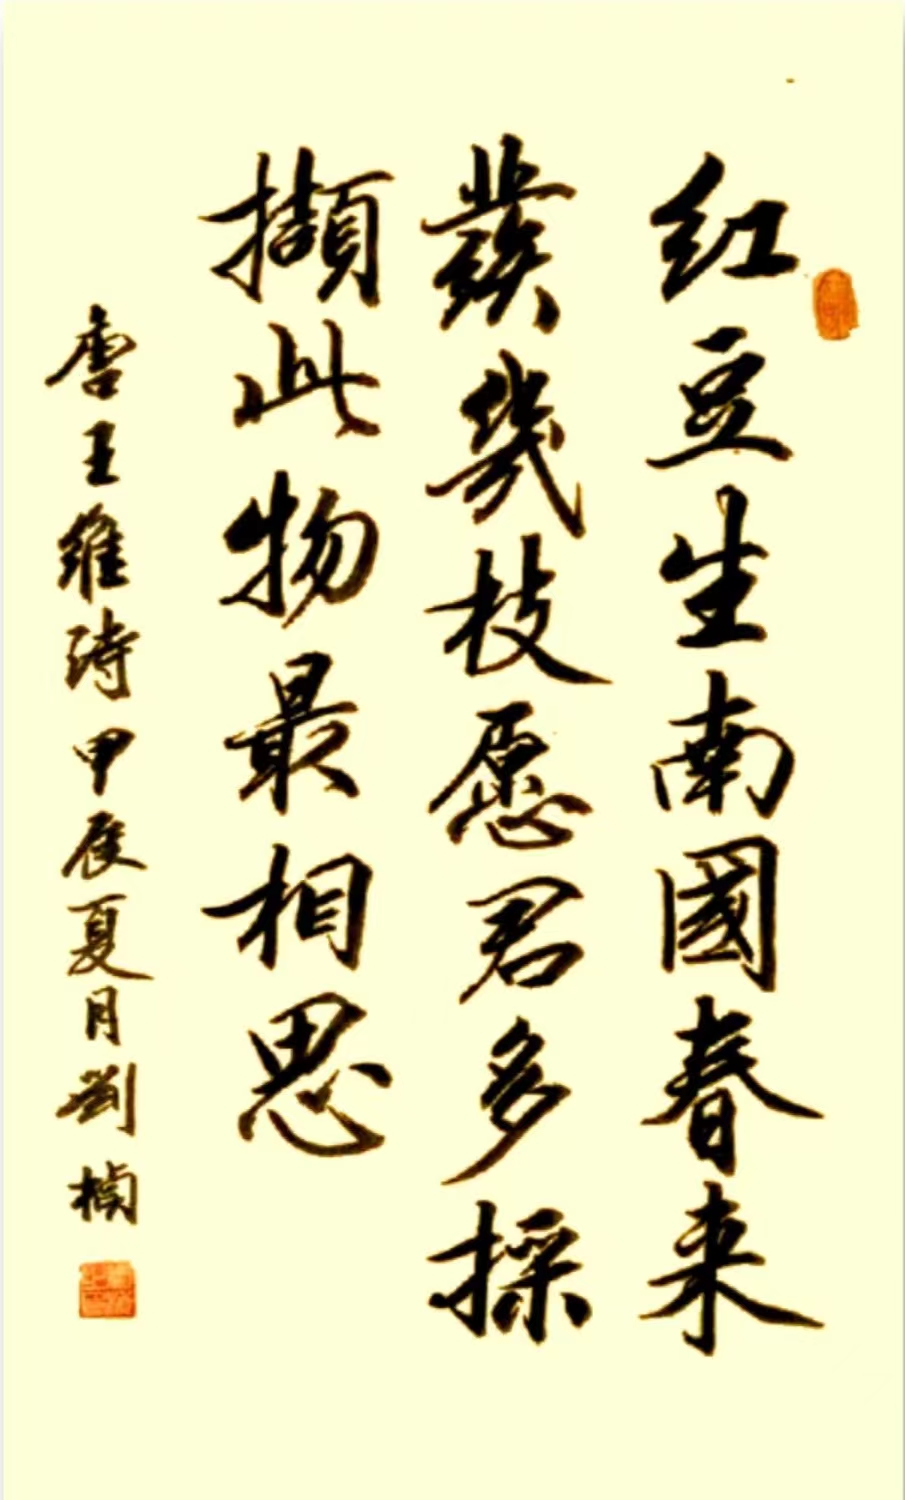 红豆生南國春来
發幾枝愿君多採
擷此物最相思
唐王維詩甲辰夏月劉楨